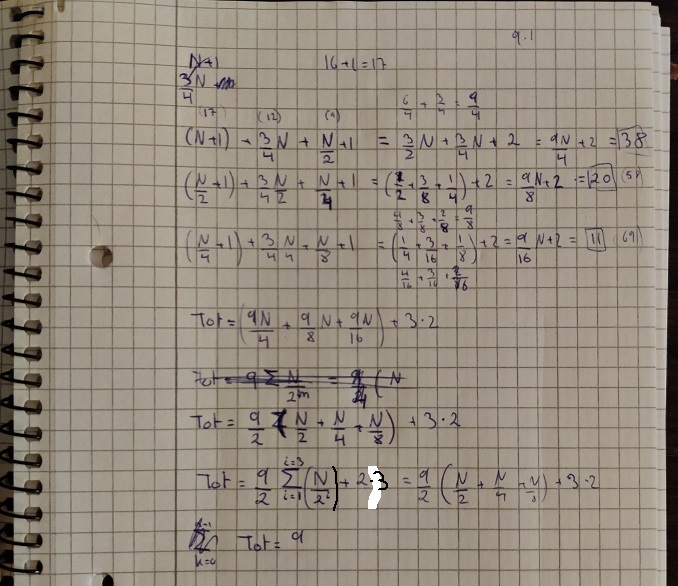 9.1
N+1 16+1=17
3N/4
6/4 + 3/4 = 9/4
(17) (12) (9)
(N+1) + 3/4 N + N/2 + 1 = 3/2 N + 3/4 N + 2 = 9N/4 + 2 = 38
(N/2 + 1) + 3/4 N/2 + N/4 + 1 = (1/2 + 3/8 + 1/4) + 2 = 9/8 N + 2 = 20
4/8 + 3/8 + 2/8 = 9/8
(N/4 + 1) + 3/4 N/4 + N/8 + 1 = (1/4 + 3/16 + 1/8) + 2 = 9/16 N + 2 = 11 (69)
4/16 + 3/16 + 2/16
Tot = (9N/4 + 9/8 N + 9N/16) + 3·2
Tot = 9 Σ N/2^m = 9/4 (N
Tot = 9/2 (N/2 + N/4 + N/8) + 3·2
Tot = 9/2 Σ i=3 i=1 (N/2^i) + 2·3 = 9/2 (N/2 + N/4 + N/8) + 3·2
k=0 Tot = 9